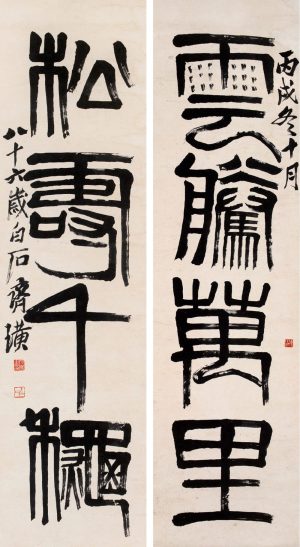 丙戌冬十月
雲騰萬里
松壽千龝
八十六歲白石齊璜